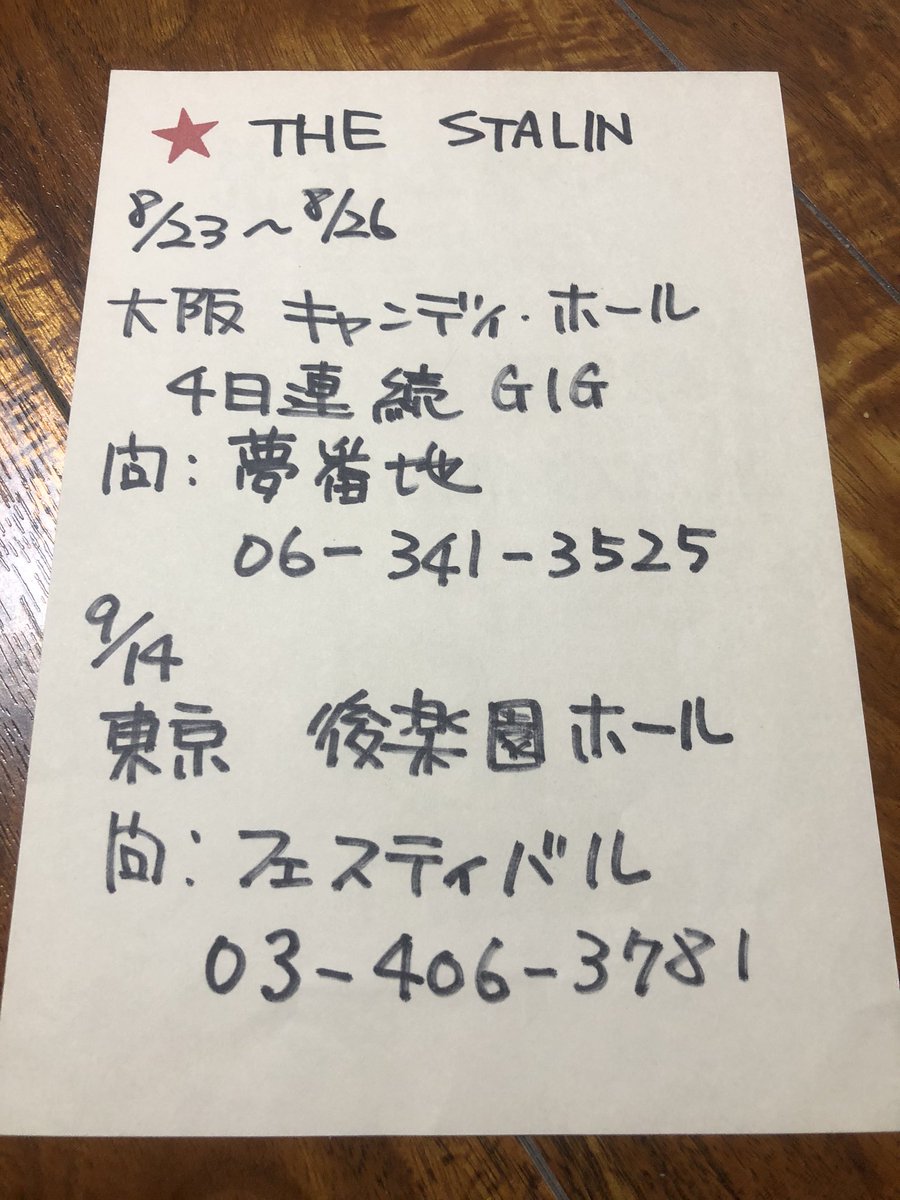 ★ THE STALIN
8/23〜8/26
大阪 キャンディ・ホール
4日連続 GIG
問:夢番地
06-341-3525
9/14
東京 後楽園ホール
問:フェスティバル
03-406-3781